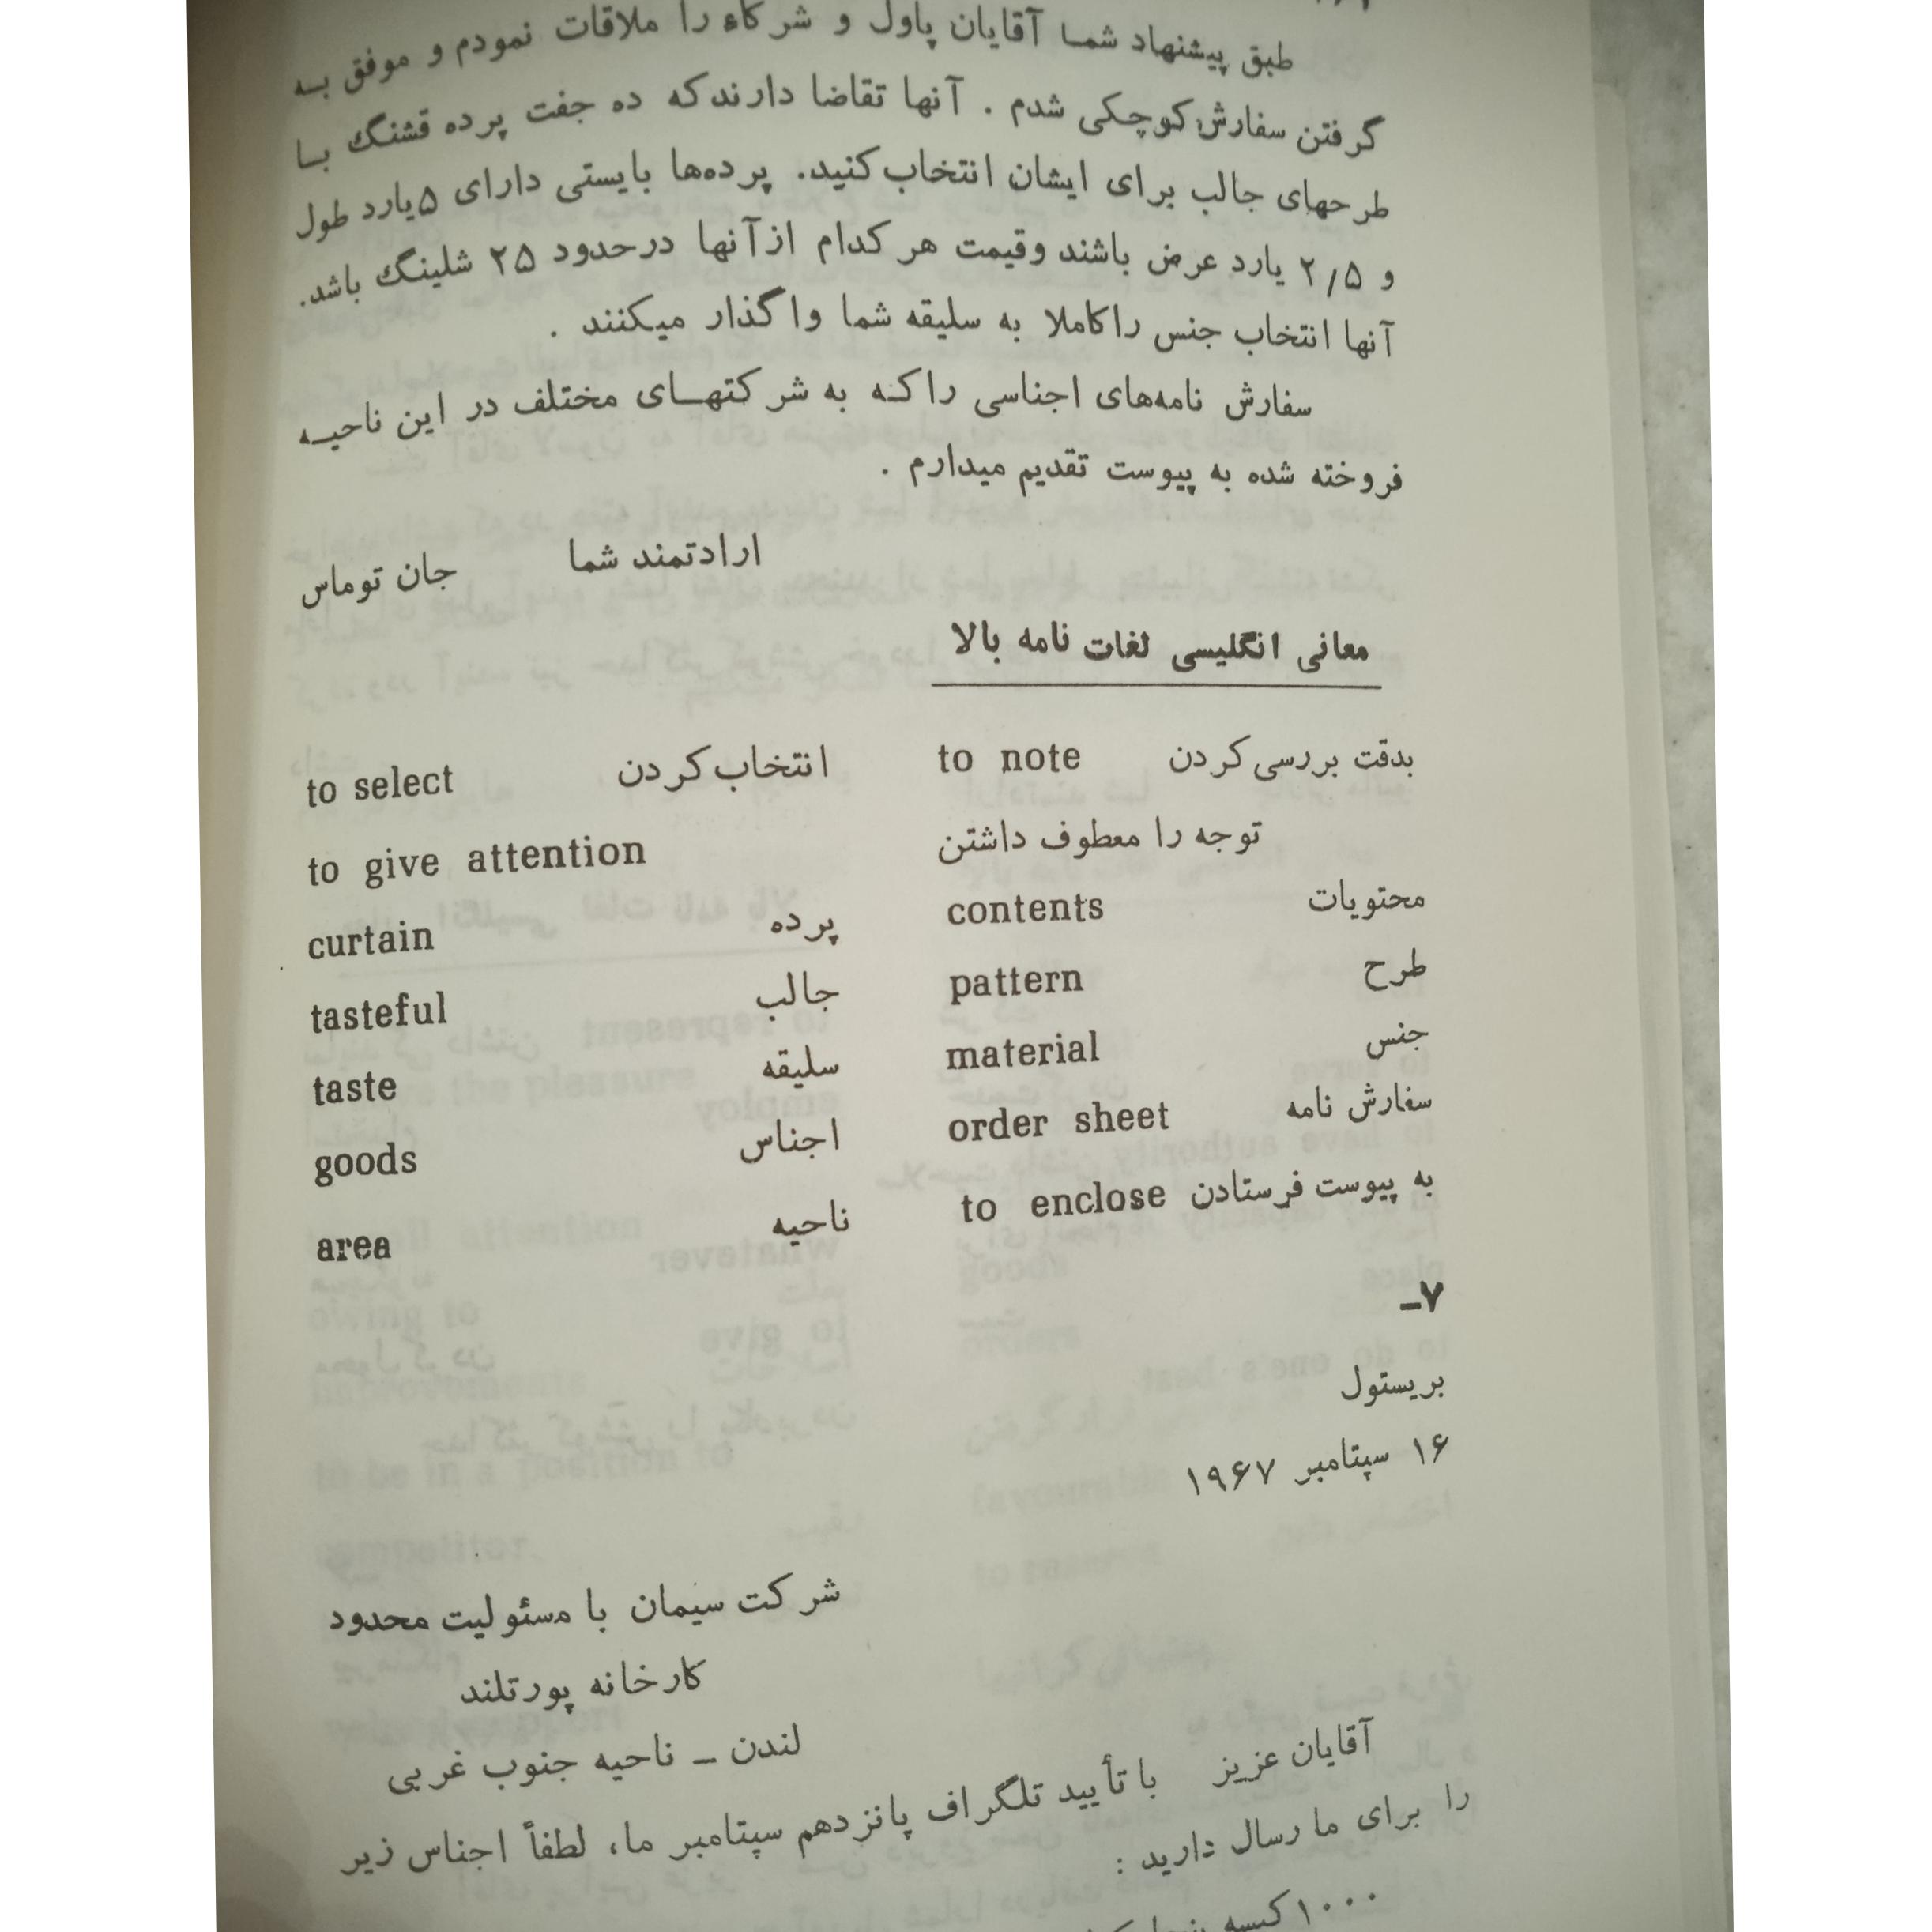 طبق پیشنهاد شما آقایان پاول و شرکاء را ملاقات نمودم و موفق به
گرفتن سفارش کوچکی شدم . آنها تقاضا دارند که ده جفت پرده قشنگ با
طرحهای جالب برای ایشان انتخاب کنید. پرده‌ها بایستی دارای ۵ یارد طول
و ۲/۵ یارد عرض باشند و قیمت هر کدام از آنها در حدود ۲۵ شلینگ باشد.
آنها انتخاب جنس را کاملا به سلیقه شما واگذار میکنند .
سفارش نامه‌های اجناسی را که به شرکتهای مختلف در این ناحیه
فروخته شده به پیوست تقدیم میدارم .
ارادتمند شما جان توماس
معانی انگلیسی لغات نامه بالا
بدقت بررسی کردن to note انتخاب کردن to select
توجه را معطوف داشتن to give attention
محتویات contents پرده curtain
طرح pattern جالب tasteful
جنس material سلیقه taste
سفارش نامه order sheet اجناس goods
به پیوست فرستادن to enclose ناحیه area
۷-
بریستول
۱۶ سپتامبر ۱۹۶۷
شرکت سیمان با مسئولیت محدود
کارخانه پورتلند
لندن - ناحیه جنوب غربی
آقایان عزیز با تأیید تلگراف پانزدهم سپتامبر ما، لطفاً اجناس زیر
را برای ما رسال دارید :
۱۰۰۰ کیسه